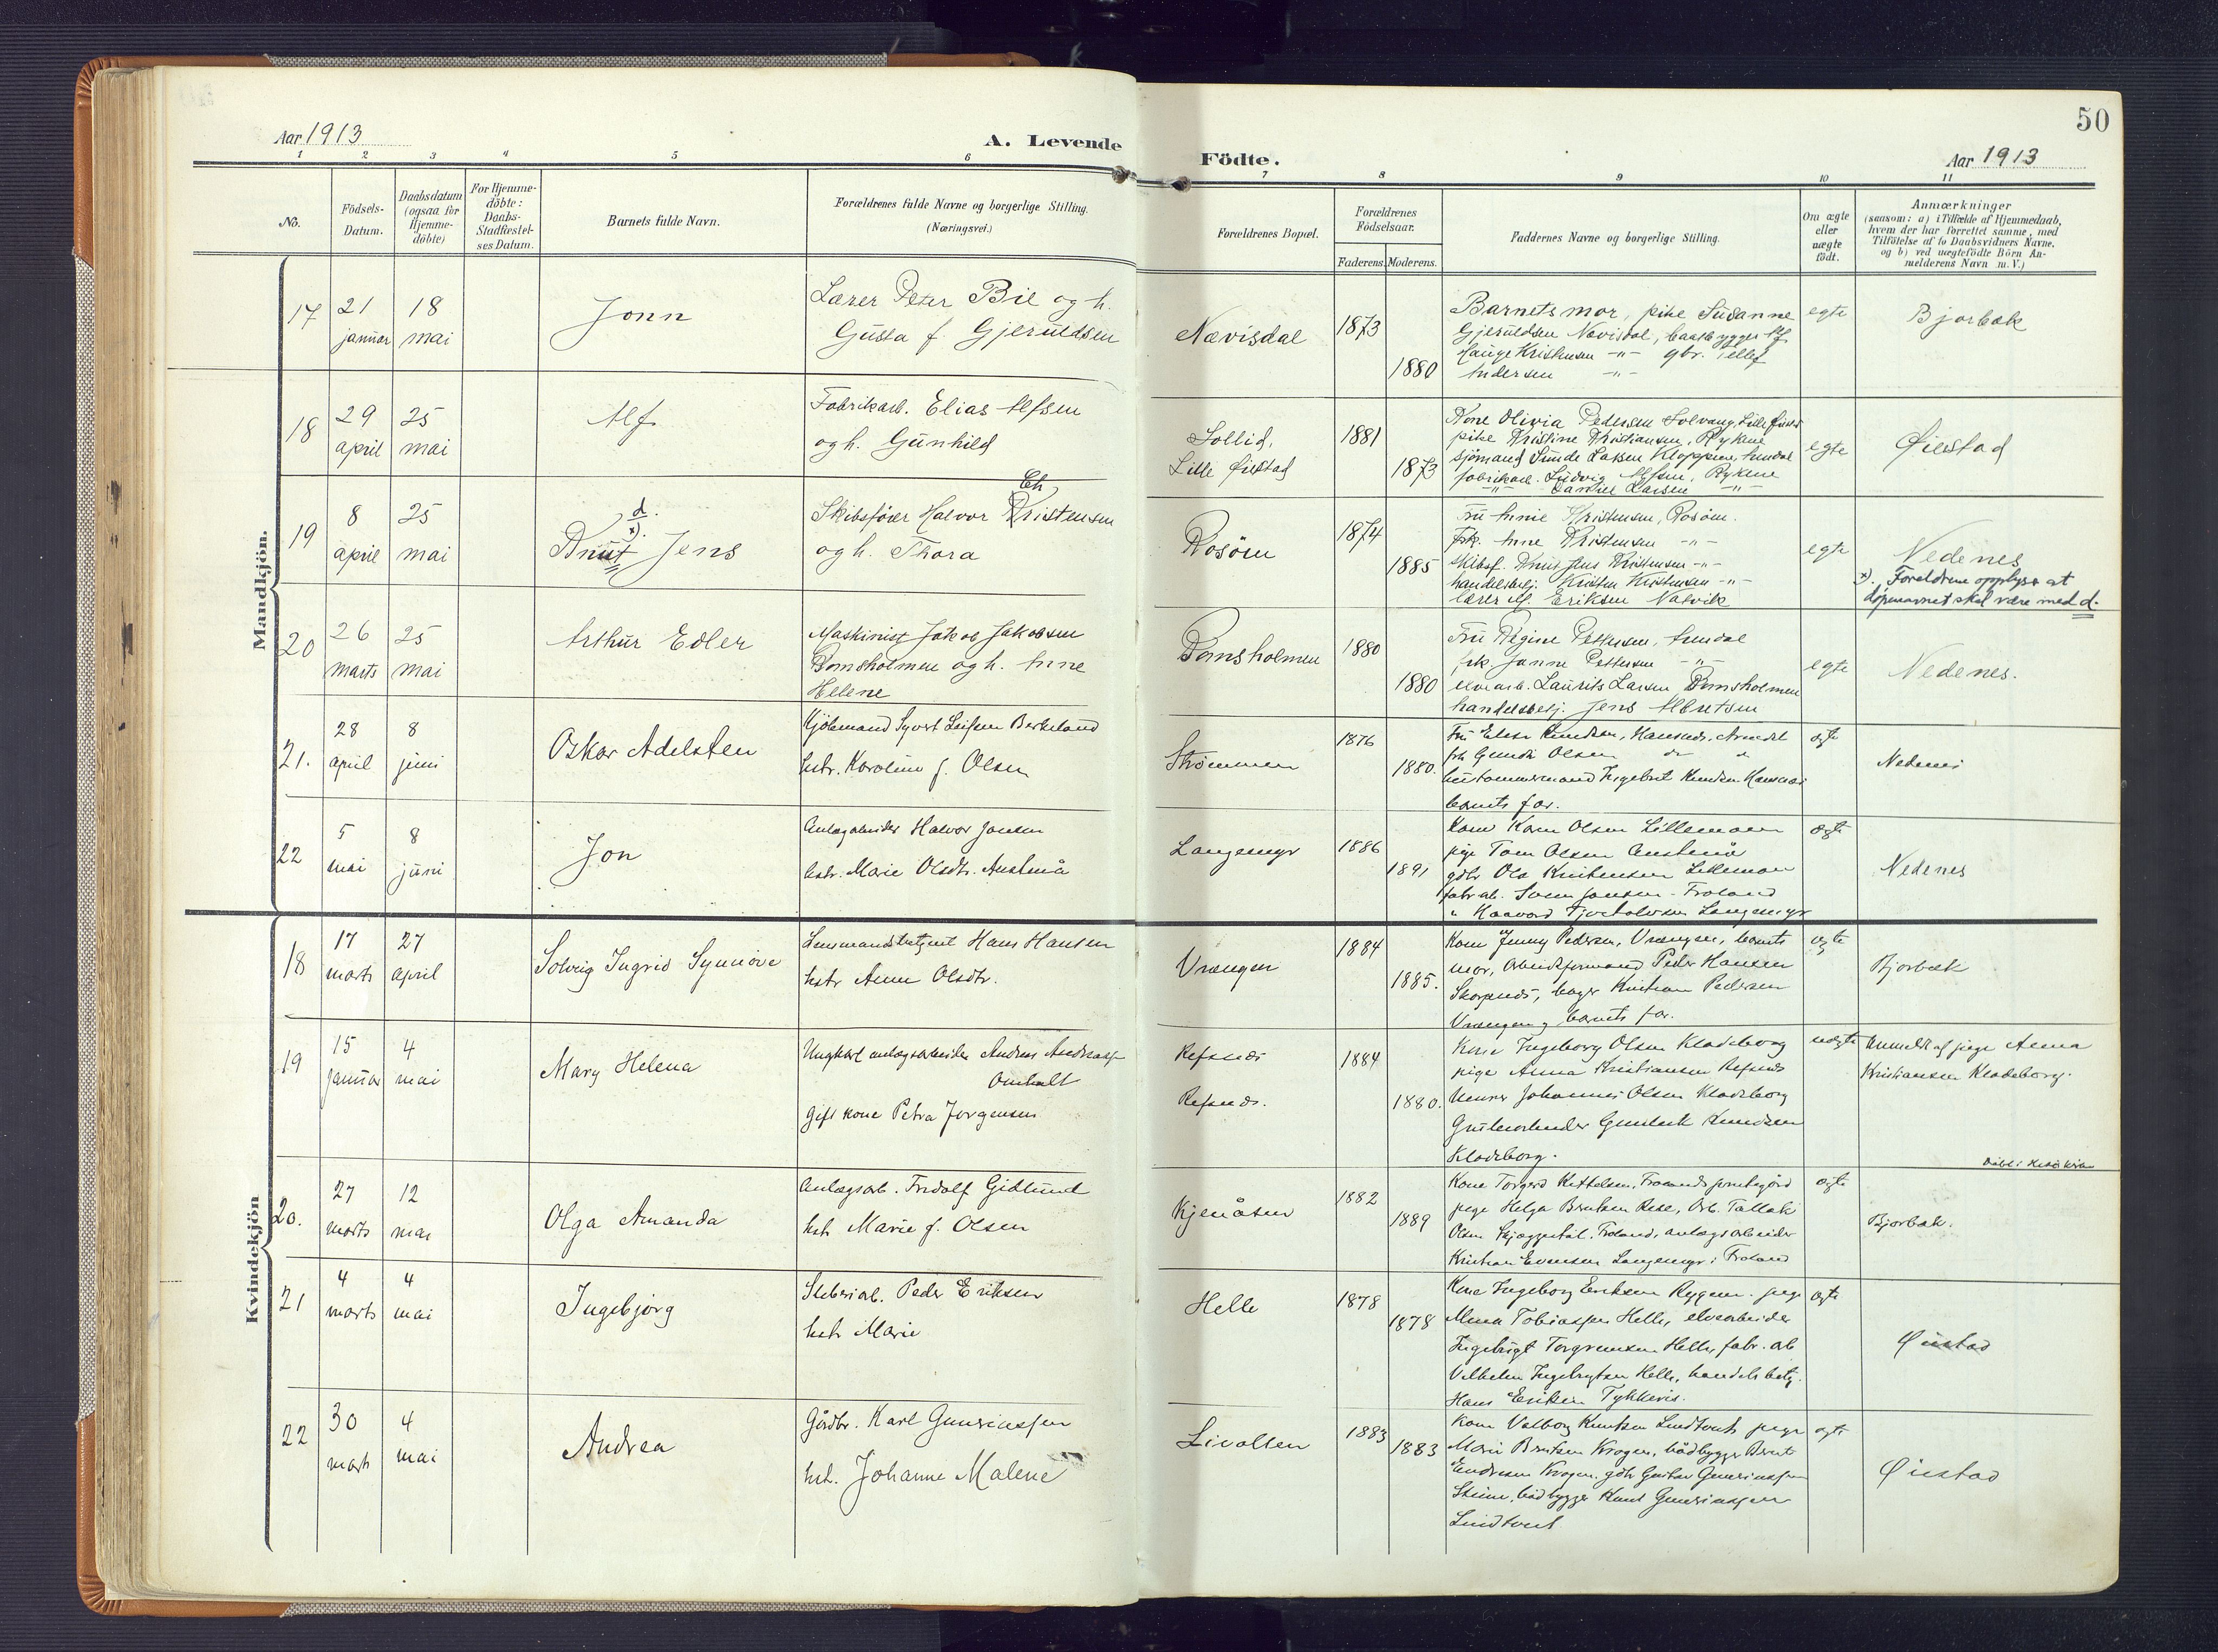 50
Aar 1913
A. Levende
Födte.
Aar 1913
1 2 3 4 5 6
7 8 9 10 11
No.
Födsels-
Datum.
Daabsdatum
(ogsaa for
Hjemme-
döbte)
For Hjemme-
döbte:
Daabs-
Stadfæstel-
ses Datum.
Barnets fulde Navn.
Forældrenes fulde Navne og borgerlige Stilling.
(Næringsvei.)
Forældrenes Bopæl.
Forældrenes
Födselsaar.
Faderens. Moderens.
Faddernes Navne og borgerlige Stilling.
Om ægte
eller
uægte
födt.
Anmærkninger
(saasom: a) i Tilfælde af Hjemmedaab,
hvem der har forrettet samme, med
Tilföielse af to Daabsvidners Navne,
og b) ved uægtefödte Börn An-
melderens Navn m. V.)
Mandkjön.
17
21
januar
18
mai
Jonn
Lærer Peter Bie og h.
Gusta f. Gjeruldsen
Nævisdal
1873
1880
Barnets mor, pike Susanne
Gjeruldsen Nævisdal, baatbygger
Hauge Kristensen -"- gbr.
Andersen -"-
egte
Bjorbæk
18
29
april
25
mai
Alf
Fabrikarb. Elias Alfsen
og h. Gunhild
Sollid,
Lille Øiestad
1881
1873
Kone Olivia Pedersen Solvang, Lille
pike Kristine Kristiansen, Rykene
sjömand Sunde Larsen Kloppene, Arendal
fabrikarb. Ludvig Alfsen, Rykene
-"- Daniel Larsen -"-
egte
Øiestad
19
8
april
25
mai
d.
x).
Knut Jens
Ch
Skibsförer Halvor Kristensen
og h. Thora
Rosöen
1874
1885
Fru Annie Kristensen, Rosöen.
frk. Anne Kristensen -"-
skibsf. Knut Jens Kristensen -"-
handelsbetj. Kristen Kristensen -"-
lærer M. Eriksen Natvik
egte
Nedenes
x). Foreldrene opplyser at
döpenavnet skal være med d.
20
26
marts
25
mai
Arthur Edler
Maskinist Jakob Jakobsen
Bomsholmen og h. Anne
Helene
Bomsholmen
1880
1880
Fru Regine Pettersen, Arendal
frk Janna Pettersen -"-
elvearb. Laurits Larsen, Bomsholmen
handelsbetj. Jens Albretsen
egte
Nedenes.
21.
28
april
8
juni
Oskar Adelsten
Kjöbmand Syvert Leifsen Berkeland
hstr. Karoline f. Olsen
Strömmen
1876
1880.
Fru Elise Knudsen, Hansnes, Arendal
frk Gunda Olsen do "
hustömmermand Ingebret Knudsen Hansnæs
barnets far.
ægte
Nedenes
22
5
mai
8
juni
Jon
Anlægsarbeider Halvor Jansen
hstr. Marie Olsdtr. Austenå
Langemyr
1886
1891
Kone Karen Olsen Lillemoen
pige Tom Olsen Austenå
gdbr Ole Kristensen Lillemoen
fabr.arb. Sven Jansen - Froland
" Haavord Tjostolvsen Langemyr
ægte
Nedenes
Kvindekjön
18
17
marts
27
april
Solveig Ingrid Synnöve
Lensmandsbetjent Hans Hansen
hstr Anne Olsdtr.
Vrængen
1884
1885.
Kone Jenny Pedersen, Vrængen, barnets
mor, Arbeidsformand Peder Hansen
Skarpnes, bager Kristian Pedersen
Vrængen, barnets far.
ægte
Bjorbæk
19
15
januar
4
mai
Mary Helena
Ungkarl anlægsarbeider Andreas Andreassen
Omholt
Gift kone Petra Jorgensen
Refsnes
Refsnes.
1884
1880.
Kone Ingeborg Olsen Klodeborg
pige Anna Kristiansen Refsnes
Johannes Olsen Klodeborg
Grubearbeider Gunleik Knudsen
Klodeborg.
uægte
Anmeldt af pige Anna
Kristiansen Klodeborg.
20.
27
marts
12
mai
Olga Amanda
Anlægsarb. Fridolf Gidlund
hstr Marie f. Olsen
Kjenåsen
1882
1889
Kone Torgerd Kittelsen, Frolands prestegård
pige Helga Berntsen Rise, Arb. Tallak
Olsen Froland, anlægsarbeider
Kristian Evensen Langemyr i Froland
ægte
Bjorbæk.
21
4
marts
4
mai
Ingebjörg
Sliberiarb. Peder Eriksen
hstr Marie
Helle
1878
1878
Kone Ingeborg Eriksen Rygene. pige
Alma Tobiassen Helle, elvearbeider
Ingebrigt Torgrimsen Helle, fabr. arb
Vilhelm Ingebrigtsen Helle, handelsbetj.
Hans Eriksen
ægte
Øiestad
22
30
marts
4
mai
Andrea
Gårdbr. Karl Gunsteinssen
hstr. Johanne Malene
Livolten
1883
1883
Kone Valborg Knutsen Lindtveit pige
Marie Berntsen Krogen, bådbygger Bernt
Krogen. gdbr Gustav
bådbygger Knut
Lindtveit
ægte
Øiestad